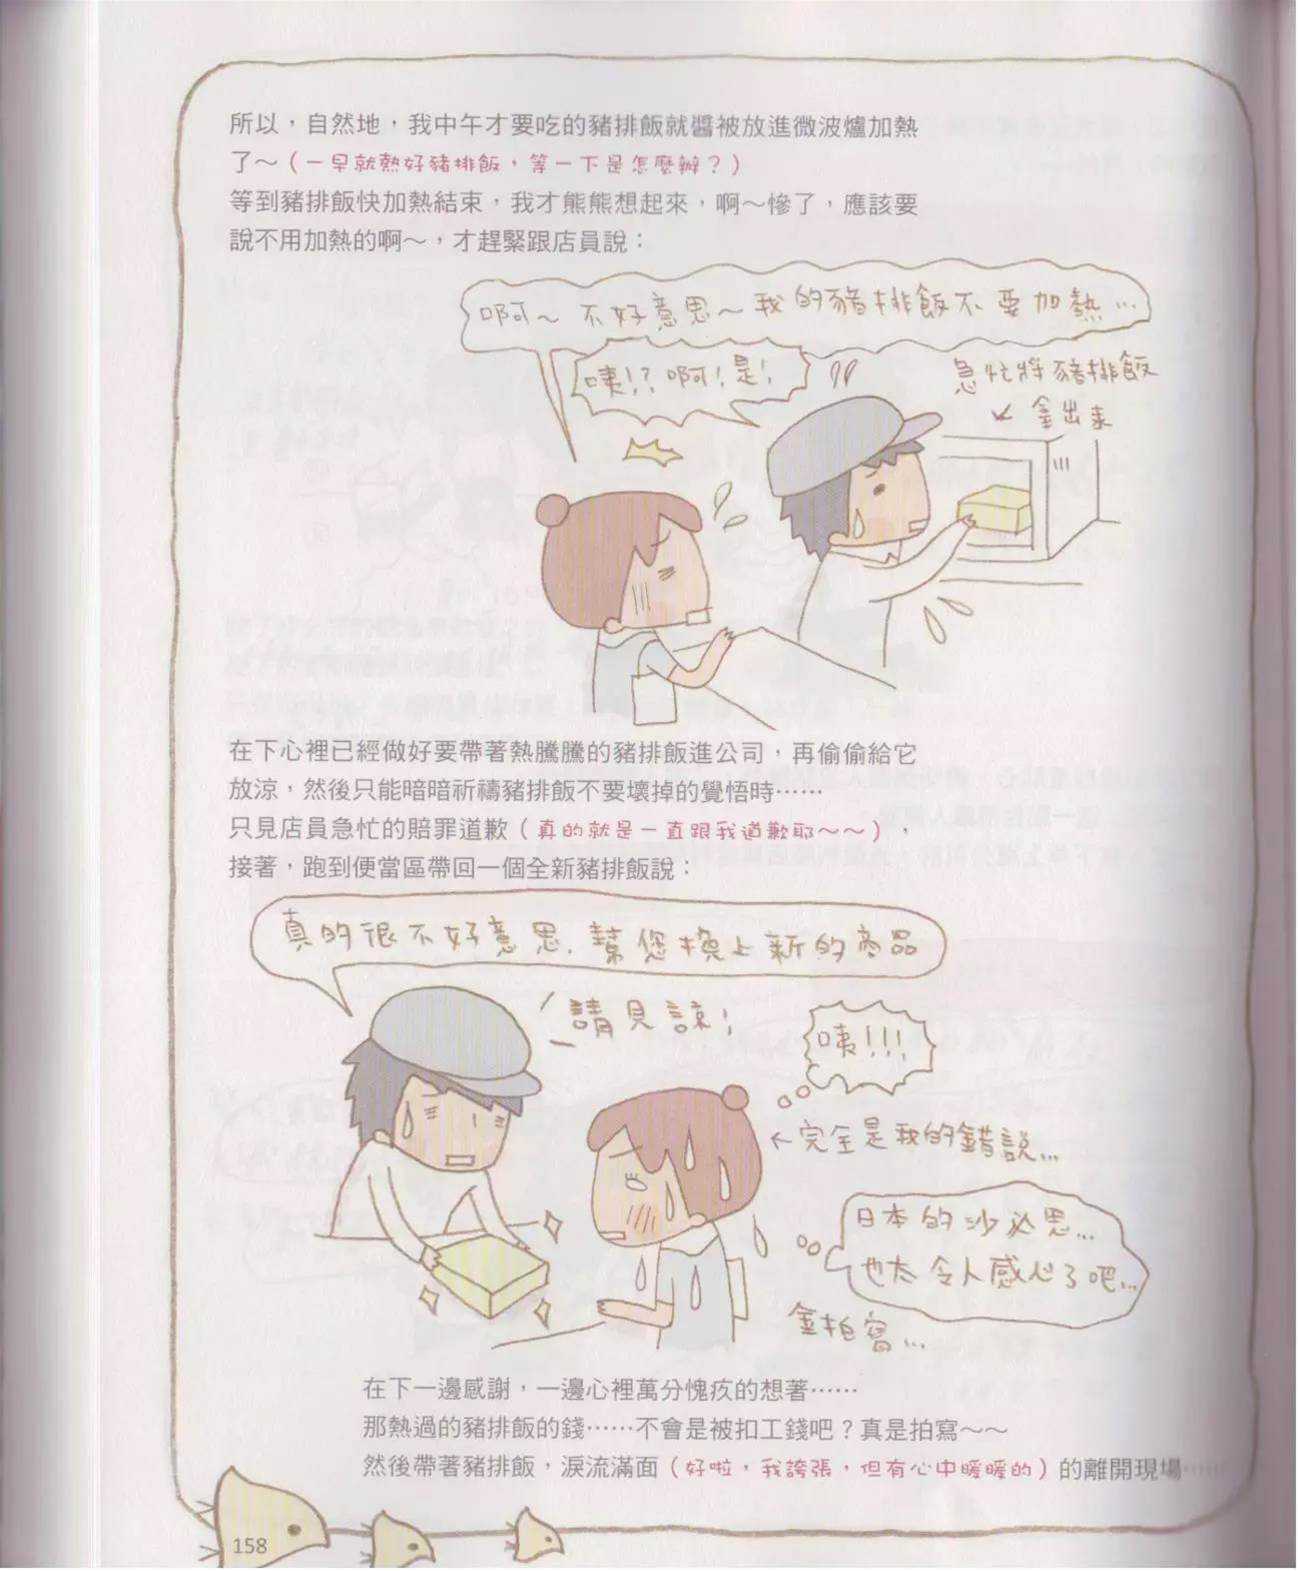 所以，自然地，我中午才要吃的豬排飯就醬被放進微波爐加熱
了～（一早就熱好豬排飯，等一下是怎麼辦？）
等到豬排飯快加熱結束，我才熊熊想起來，啊～慘了，應該要
說不用加熱的啊～，才趕緊跟店員說：
啊～不好意思～我的豬排飯不要加熱…
咦!？啊!是!
急忙將豬排飯
拿出來
在下心裡已經做好要帶著熱騰騰的豬排飯進公司，再偷偷給它
放涼，然後只能暗暗祈禱豬排飯不要壞掉的覺悟時……
只見店員急忙的賠罪道歉（真的就是一直跟我道歉耶～～），
接著，跑到便當區帶回一個全新豬排飯說：
真的很不好意思.幫您換上新的商品
請見諒!
咦!!!
←完全是我的錯說…
日本的沙必思…
也太令人感心了吧…
金拍寫…
在下一邊感謝，一邊心裡萬分愧疚的想著……
那熱過的豬排飯的錢……不會是被扣工錢吧？真是拍寫～～
然後帶著豬排飯，淚流滿面（好啦，我誇張，但有心中暖暖的）的離開現場……
158